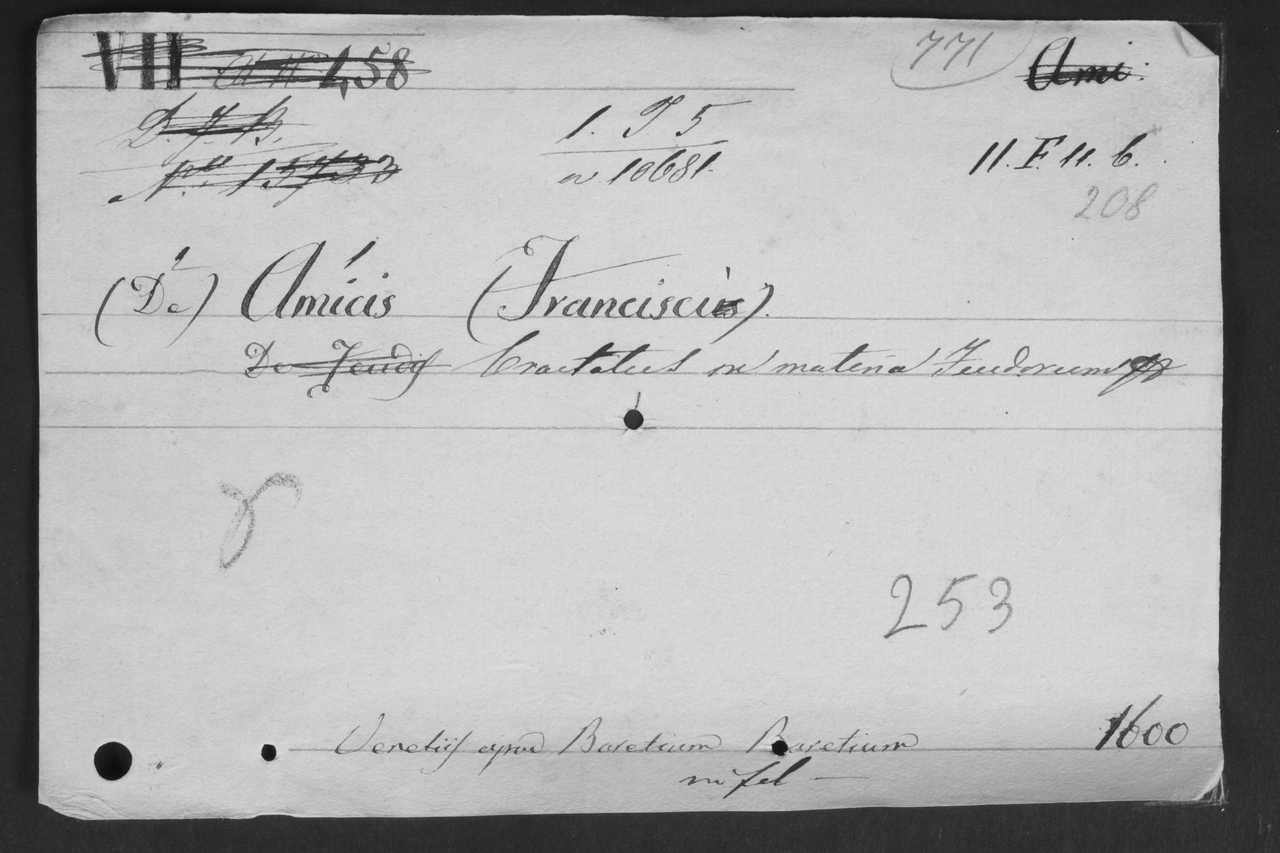 VII 458 771 Ami.
D. J. B. 1. T 5
N.º 15733 n 10681 11. F. 11. 6.
208
(De) Amicis (Francisci).
De Feudis Tractatus in materia Feudorum
253
Venetiis apud Baretium Baretium 1600
in fol